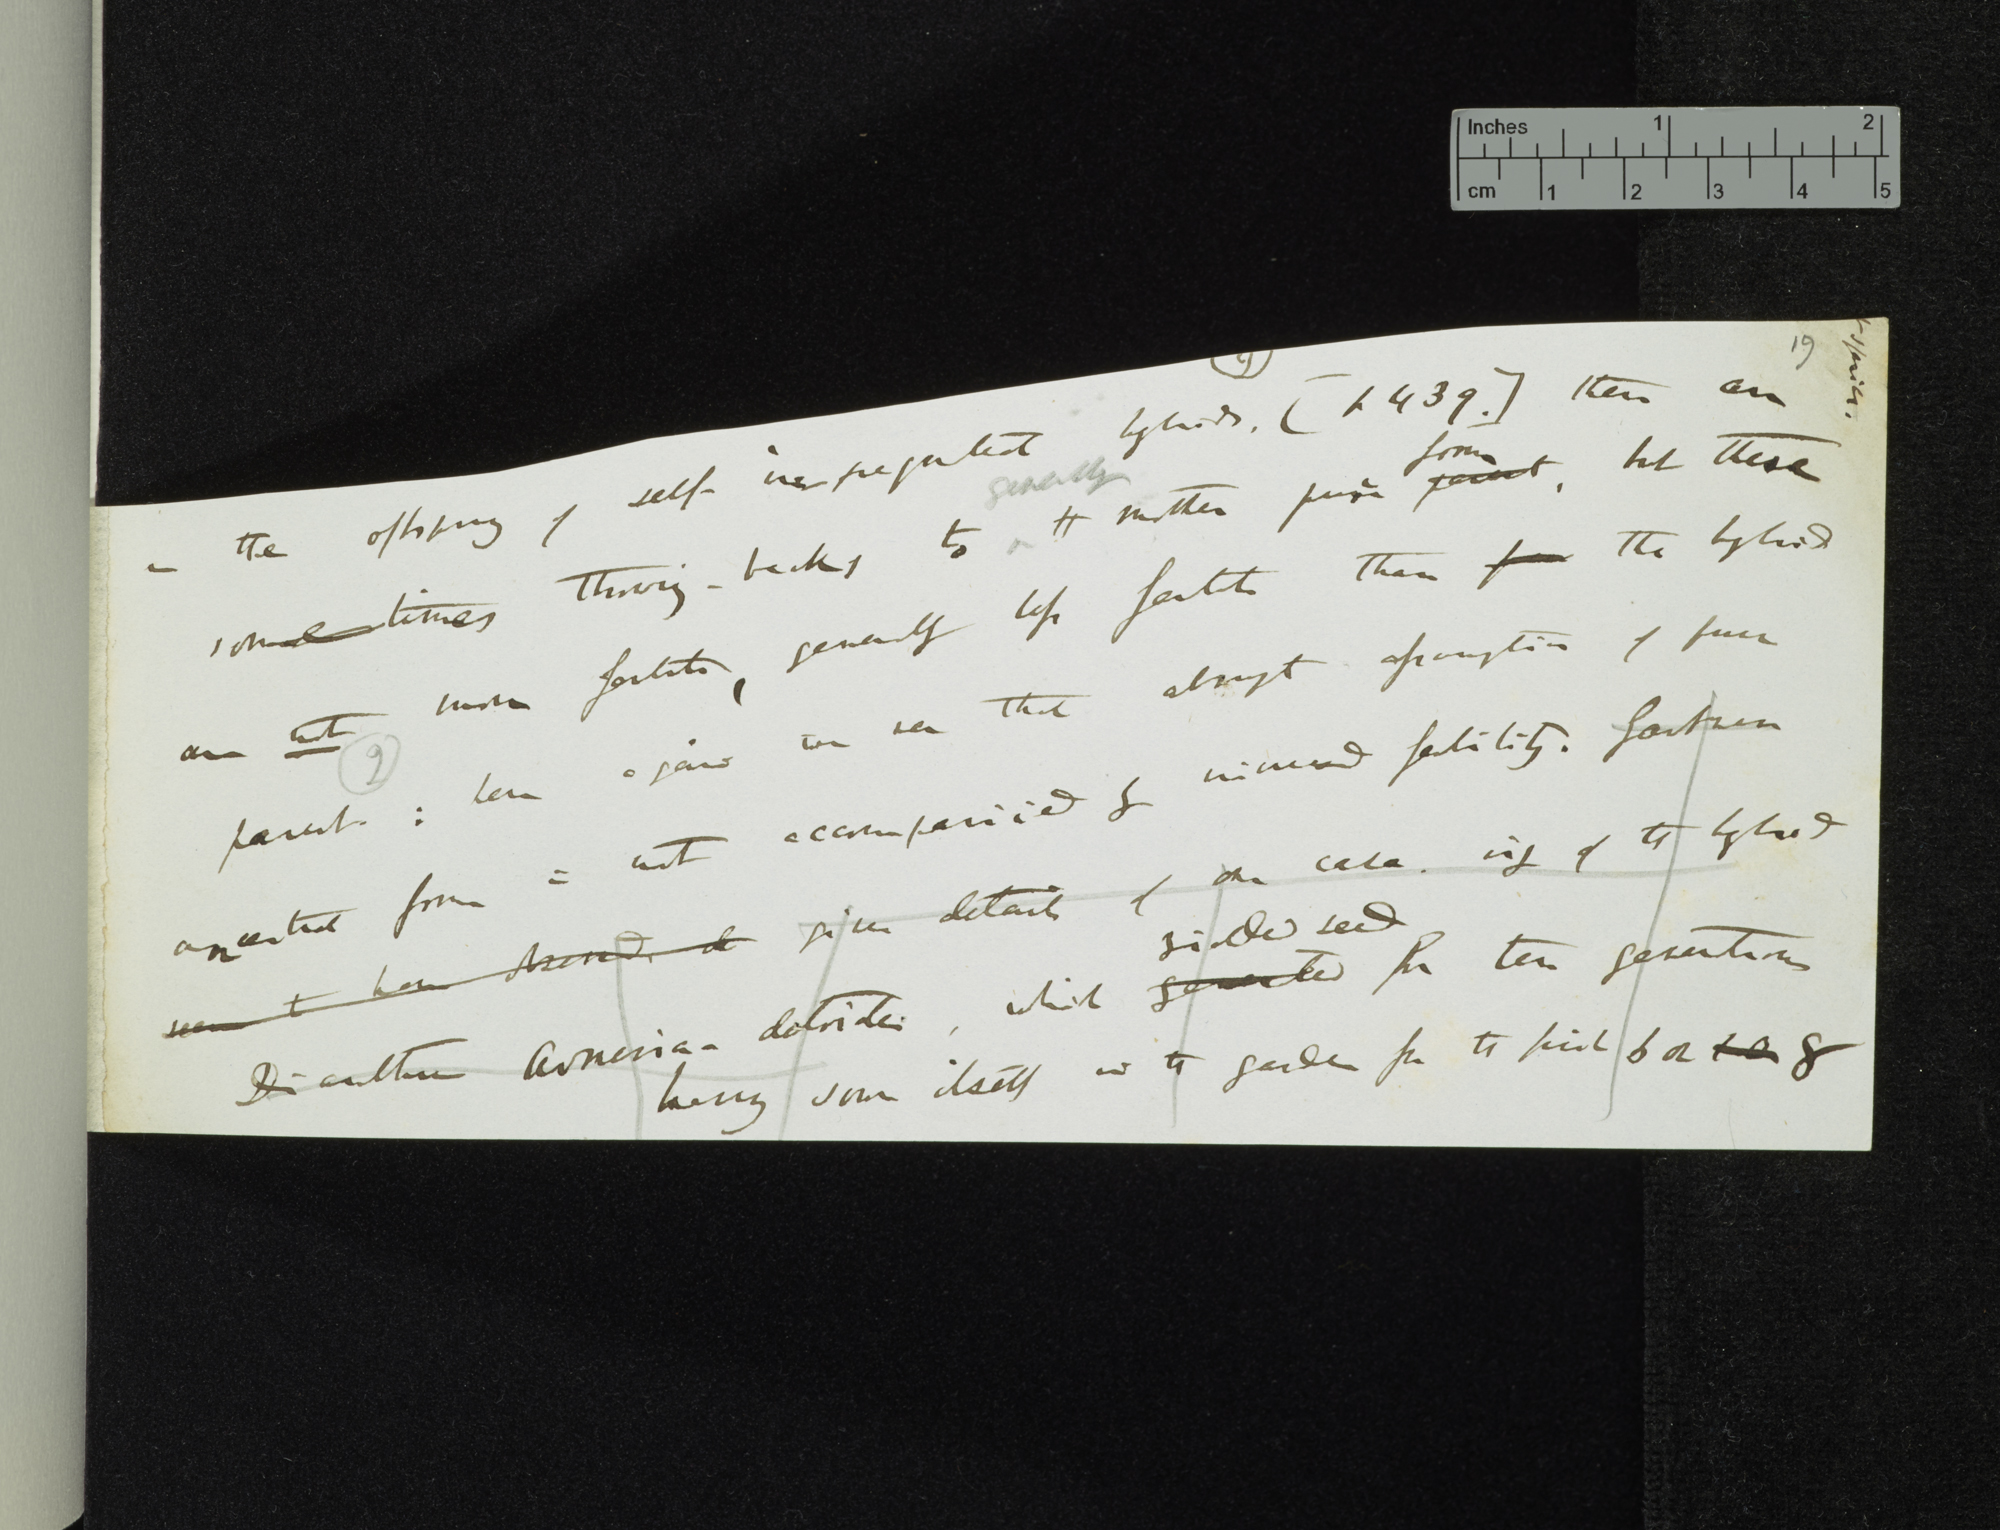 Inches 1 2
cm 1 2 3 4 5
19
in the offspring of self-impregnated hybrids. [p 439.] there are
generally
form
sometimes throwing-backs to the mother pure parent, but these
are not more fertile, generally less fertile than the hybrid
9
parent: here again we see that abrupt assumption of pure
ancestral form is not accompanied by increased fertility. Gartner
seem to have observed, & gives details of one case. viz of the hybrid
yielded seed
Dianthus Armeria-deltoides, which generated for ten generations
having sown itself in the garden for the first 6 or 8